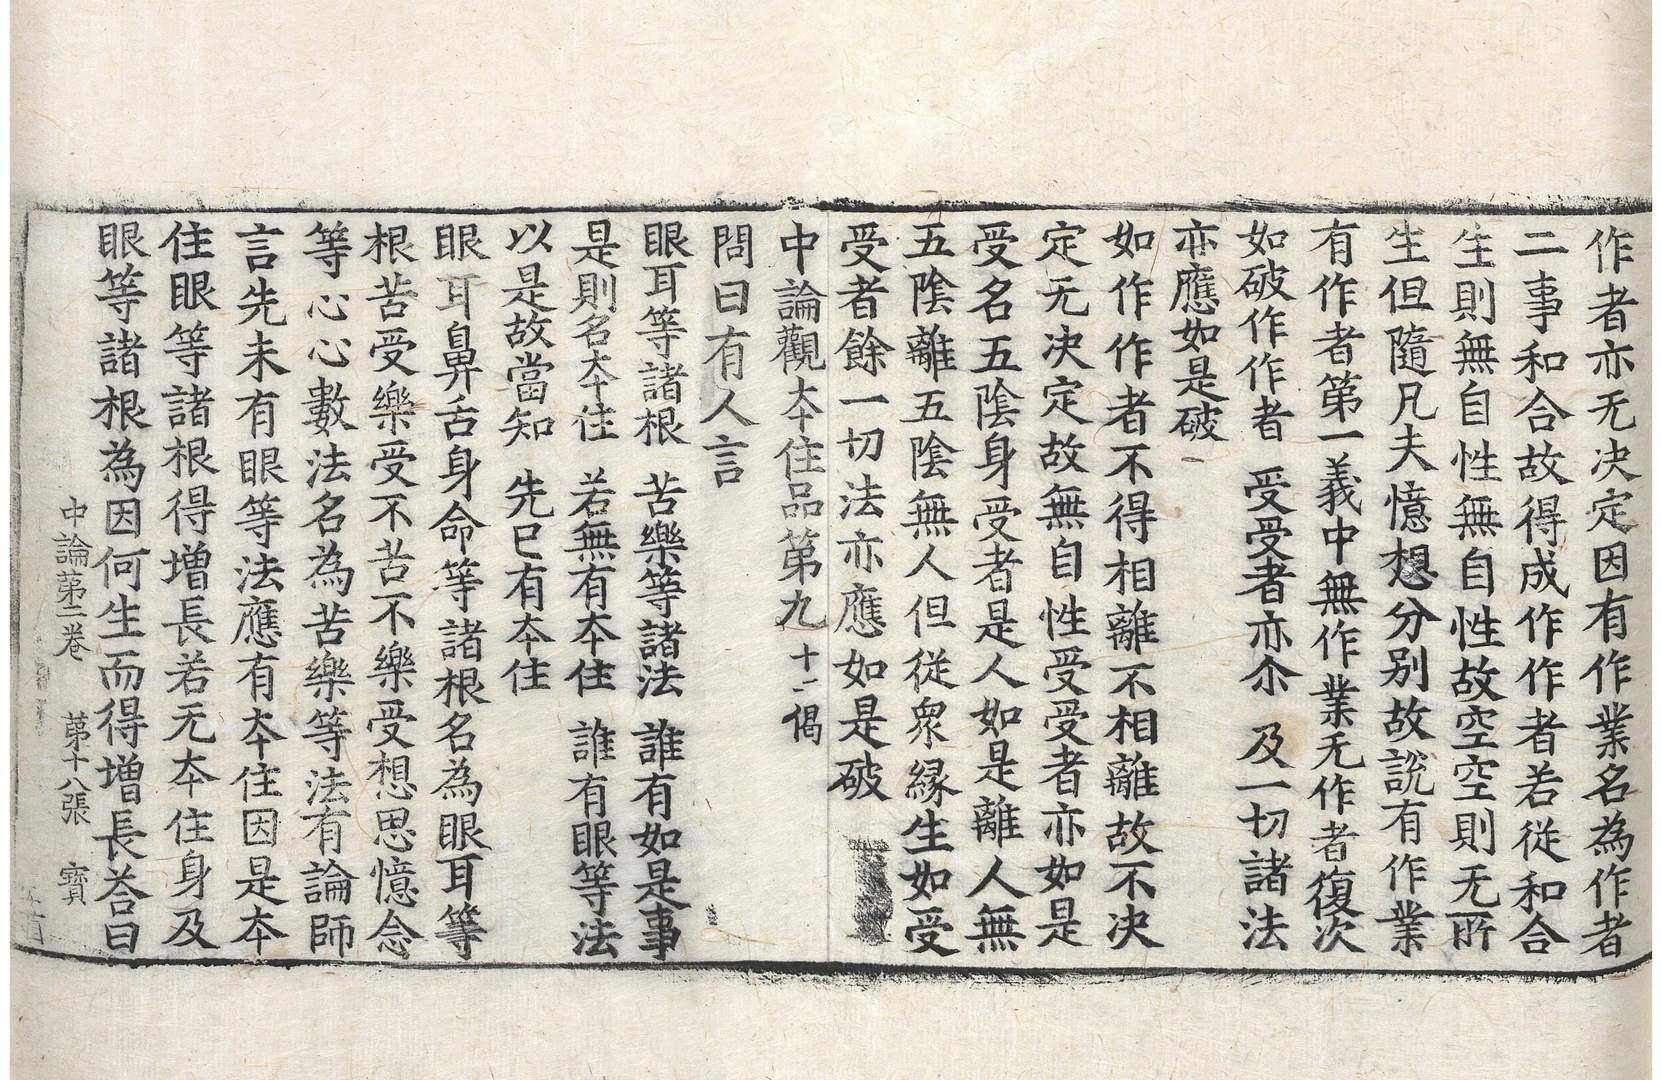 作者亦无决定因有作業名為作者
二事和合故得成作作者若從和合
生則無自性無自性故空空則无所
生但隨凡夫憶想分别故說有作業
有作者第一義中無作業无作者復次
如破作作者　受受者亦尒　及一切諸法
亦應如是破
如作作者不得相離不相離故不决
定无决定故無自性受受者亦如是
受名五陰身受者是人如是離人無
五陰離五陰無人但從衆緣生如受
受者餘一切法亦應如是破
中論觀夲住品第九十二偈
問曰有人言
眼耳等諸根　苦樂等諸法　誰有如是事
是則名夲住　若無有夲住　誰有眼等法
以是故當知　先已有夲住
眼耳鼻舌身命等諸根名為眼耳等
根苦受樂受不苦不樂受想思憶念
等心心數法名為苦樂等法有論師
言先未有眼等法應有夲住因是夲
住眼等諸根得增長若无夲住身及
眼等諸根為因何生而得增長荅曰
中論第二卷　第十八張　寶